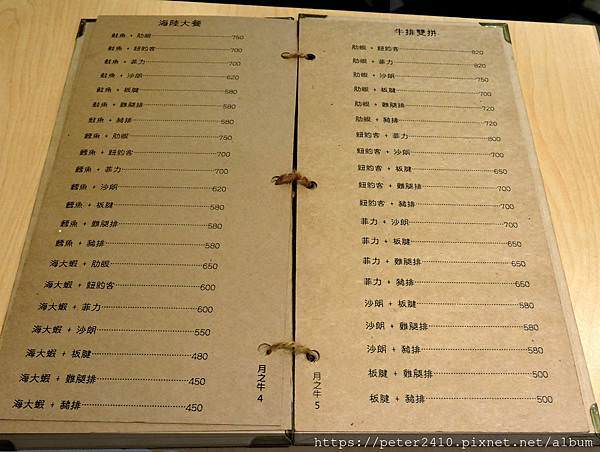 海陸大餐
鮭魚 + 肋眼 750
鮭魚 + 紐約客 700
鮭魚 + 菲力 700
鮭魚 + 沙朗 620
鮭魚 + 板腱 580
鮭魚 + 雞腿排 580
鮭魚 + 豬排 580
鱈魚 + 肋眼 750
鱈魚 + 紐約客 700
鱈魚 + 菲力 700
鱈魚 + 沙朗 620
鱈魚 + 板腱 580
鱈魚 + 雞腿排 580
鱈魚 + 豬排 580
海大蝦 + 肋眼 650
海大蝦 + 紐約客 600
海大蝦 + 菲力 600
海大蝦 + 沙朗 550
海大蝦 + 板腱 480
海大蝦 + 雞腿排 450
海大蝦 + 豬排 450
月之牛 4
牛排雙拼
肋眼 + 紐約客 820
肋眼 + 菲力 820
肋眼 + 沙朗 750
肋眼 + 板腱 700
肋眼 + 雞腿排 720
肋眼 + 豬排 720
紐約客 + 菲力 800
紐約客 + 沙朗 700
紐約客 + 板腱 650
紐約客 + 雞腿排 700
紐約客 + 豬排 700
菲力 + 沙朗 700
菲力 + 板腱 650
菲力 + 雞腿排 650
菲力 + 豬排 650
沙朗 + 板腱 580
沙朗 + 雞腿排 580
沙朗 + 豬排 580
板腱 + 雞腿排 500
板腱 + 豬排 500
月之牛 5
https://peter2410.pixnet.net/album